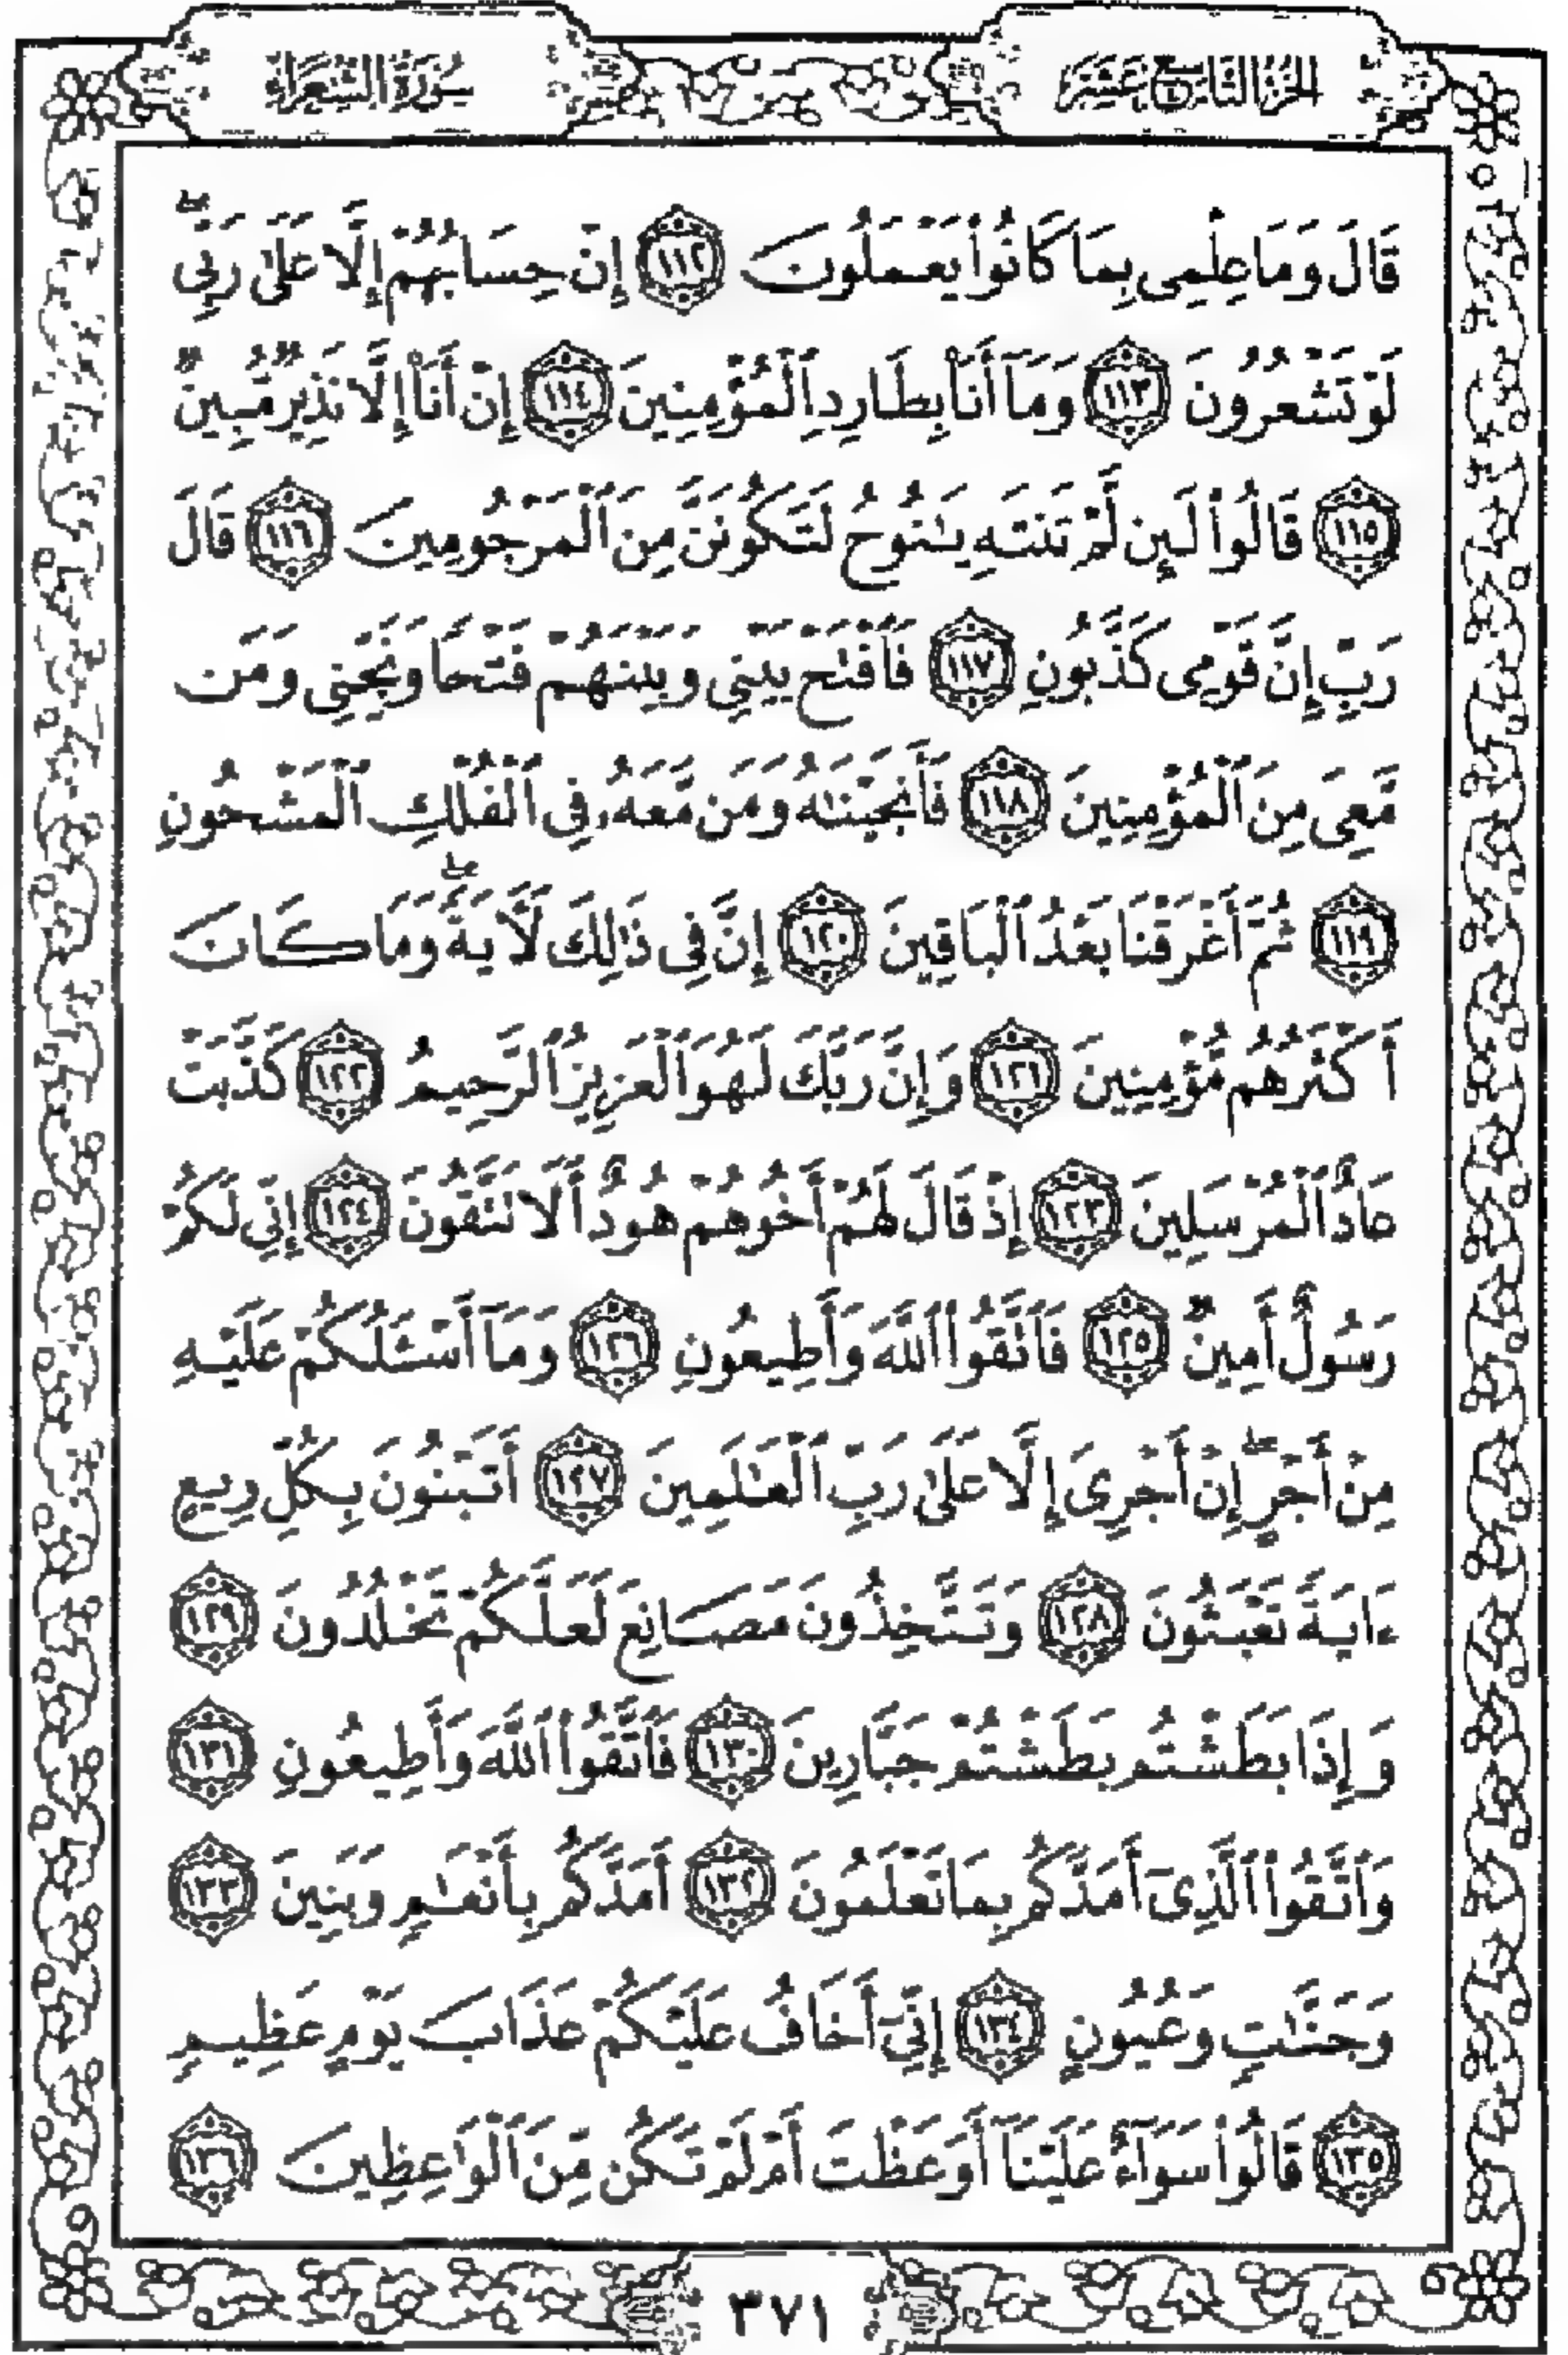 الجزء التاسع عشر
سورة الشعراء
قَالَ وَمَا عِلْمِى بِمَا كَانُوا۟ يَعْمَلُونَ ١١٢ إِنْ حِسَابُهُمْ إِلَّا عَلَىٰ رَبِّى ۖ
لَوْ تَشْعُرُونَ ١١٣ وَمَآ أَنَا۠ بِطَارِدِ ٱلْمُؤْمِنِينَ ١١٤ إِنْ أَنَا۠ إِلَّا نَذِيرٌ مُّبِينٌ
١١٥ قَالُوا۟ لَئِن لَّمْ تَنتَهِ يَـٰنُوحُ لَتَكُونَنَّ مِنَ ٱلْمَرْجُومِينَ ١١٦ قَالَ
رَبِّ إِنَّ قَوْمِى كَذَّبُونِ ١١٧ فَٱفْتَحْ بَيْنِى وَبَيْنَهُمْ فَتْحًا وَنَجِّنِى وَمَن
مَّعِىَ مِنَ ٱلْمُؤْمِنِينَ ١١٨ فَأَنجَيْنَـٰهُ وَمَن مَّعَهُۥ فِى ٱلْفُلْكِ ٱلْمَشْحُونِ
١١٩ ثُمَّ أَغْرَقْنَا بَعْدُ ٱلْبَاقِينَ ١٢٠ إِنَّ فِى ذَٰلِكَ لَـَٔايَةً ۖ وَمَا كَانَ
أَكْثَرُهُم مُّؤْمِنِينَ ١٢١ وَإِنَّ رَبَّكَ لَهُوَ ٱلْعَزِيزُ ٱلرَّحِيمُ ١٢٢ كَذَّبَتْ
عَادٌ ٱلْمُرْسَلِينَ ١٢٣ إِذْ قَالَ لَهُمْ أَخُوهُمْ هُودٌ أَلَا تَتَّقُونَ ١٢٤ إِنِّى لَكُمْ
رَسُولٌ أَمِينٌ ١٢٥ فَٱتَّقُوا۟ ٱللَّهَ وَأَطِيعُونِ ١٢٦ وَمَآ أَسْـَٔلُكُمْ عَلَيْهِ
مِنْ أَجْرٍ ۖ إِنْ أَجْرِىَ إِلَّا عَلَىٰ رَبِّ ٱلْعَـٰلَمِينَ ١٢٧ أَتَبْنُونَ بِكُلِّ رِيعٍ
ءَايَةً تَعْبَثُونَ ١٢٨ وَتَتَّخِذُونَ مَصَانِعَ لَعَلَّكُمْ تَخْلُدُونَ ١٢٩
وَإِذَا بَطَشْتُم بَطَشْتُمْ جَبَّارِينَ ١٣٠ فَٱتَّقُوا۟ ٱللَّهَ وَأَطِيعُونِ ١٣١
وَٱتَّقُوا۟ ٱلَّذِىٓ أَمَدَّكُم بِمَا تَعْلَمُونَ ١٣٢ أَمَدَّكُم بِأَنْعَـٰمٍ وَبَنِينَ ١٣٣
وَجَنَّـٰتٍ وَعُيُونٍ ١٣٤ إِنِّىٓ أَخَافُ عَلَيْكُمْ عَذَابَ يَوْمٍ عَظِيمٍ
١٣٥ قَالُوا۟ سَوَآءٌ عَلَيْنَآ أَوَعَظْتَ أَمْ لَمْ تَكُن مِّنَ ٱلْوَٰعِظِينَ ١٣٦
٣٧١